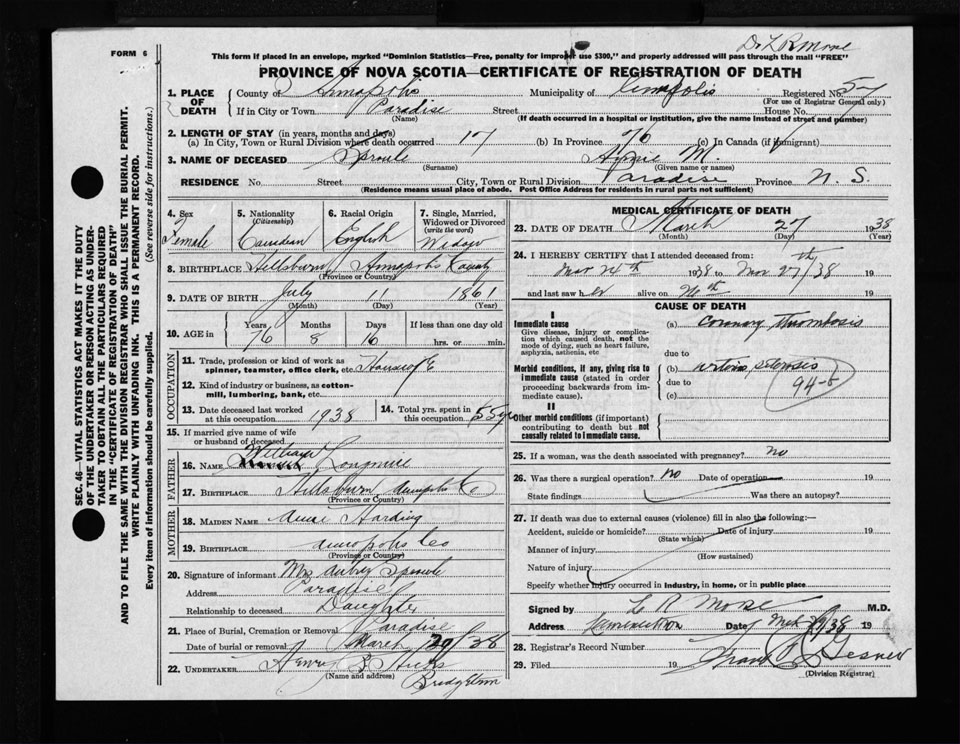 FORM 6
Dr L R Morse
This form if placed in an envelope, marked "Dominion Statistics—Free, penalty for improper use $300," and properly addressed will pass through the mail "FREE"
PROVINCE OF NOVA SCOTIA—CERTIFICATE OF REGISTRATION OF DEATH
1. PLACE OF DEATH County of Annapolis Municipality of Annapolis Registered No. 57
(For use of Registrar General only)
If in City or Town Paradise Street House No.
(Name) (If death occurred in a hospital or institution, give the name instead of street and number)
2. LENGTH OF STAY (in years, months and days)
(a) In City, Town or Rural Division where death occurred 17 (b) In Province 76 (c) In Canada (if immigrant)
3. NAME OF DECEASED Sproule Annie M.
(Surname) (Given name or names)
RESIDENCE No. Street City, Town or Rural Division Paradise Province N. S.
(Residence means usual place of abode. Post Office Address for residents in rural parts not sufficient)
SEC. 46—VITAL STATISTICS ACT MAKES IT THE DUTY
OF THE UNDERTAKER OR PERSON ACTING AS UNDER-
TAKER TO OBTAIN ALL THE PARTICULARS REQUIRED
IN THE "CERTIFICATE OF REGISTRATION OF DEATH"
AND TO FILE THE SAME WITH THE DIVISION REGISTRAR WHO SHALL ISSUE THE BURIAL PERMIT.
WRITE PLAINLY WITH UNFADING INK. THIS IS A PERMANENT RECORD.
Every item of information should be carefully supplied. (See reverse side for instructions.)
4. Sex 5. Nationality (Citizenship) 6. Racial Origin 7. Single, Married, Widowed or Divorced (write the word)
Female Canadian English Widow
8. BIRTHPLACE Hillsburn Annapolis County
(Province or Country)
9. DATE OF BIRTH July 11 1861
(Month) (Day) (Year)
10. AGE in Years Months Days If less than one day old
76 8 16 hrs. or min.
OCCUPATION
11. Trade, profession or kind of work as spinner, teamster, office clerk, etc.
12. Kind of industry or business, as cotton-mill, lumbering, bank, etc.
13. Date deceased last worked at this occupation 1938 14. Total yrs. spent in this occupation 55 yrs
15. If married give name of wife or husband of deceased
FATHER
16. NAME William Longmire
17. BIRTHPLACE Hillsburn Annapolis Co
(Province or Country)
MOTHER
18. MAIDEN NAME Anne Harding
19. BIRTHPLACE Annapolis Co
(Province or Country)
20. Signature of informant Mrs Aubrey Sproule
Address Paradise
Relationship to deceased Daughter
21. Place of Burial, Cremation or Removal Paradise
Date of burial or removal March 29/38
22. UNDERTAKER Henry B Hicks
(Name and address)
Bridgetown
MEDICAL CERTIFICATE OF DEATH
23. DATE OF DEATH March 27 1938
(Month) (Day) (Year)
24. I HEREBY CERTIFY that I attended deceased from:
Mar 24th 1938 to Mar 27th/38 19
and last saw her alive on 19
CAUSE OF DEATH
I
Immediate cause
Give disease, injury or complication which caused death, not the mode of dying, such as heart failure, asphyxia, asthenia, etc
(a) Coronary Thrombosis
due to
Morbid conditions, if any, giving rise to immediate cause (stated in order proceeding backwards from immediate cause).
(b)
due to 94-b
(c)
II
Other morbid conditions (if important) contributing to death but not causally related to immediate cause.
25. If a woman, was the death associated with pregnancy? no
26. Was there a surgical operation? no Date of operation 19
State findings Was there an autopsy?
27. If death was due to external causes (violence) fill in also the following:—
Accident, suicide or homicide? Date of injury 19
(State which)
Manner of injury
(How sustained)
Nature of injury
Specify whether injury occurred in industry, in home, or in public place
Signed by L R Morse M.D.
Address Lawrencetown Date 19
28. Registrar's Record Number
29. Filed 19
(Division Registrar)